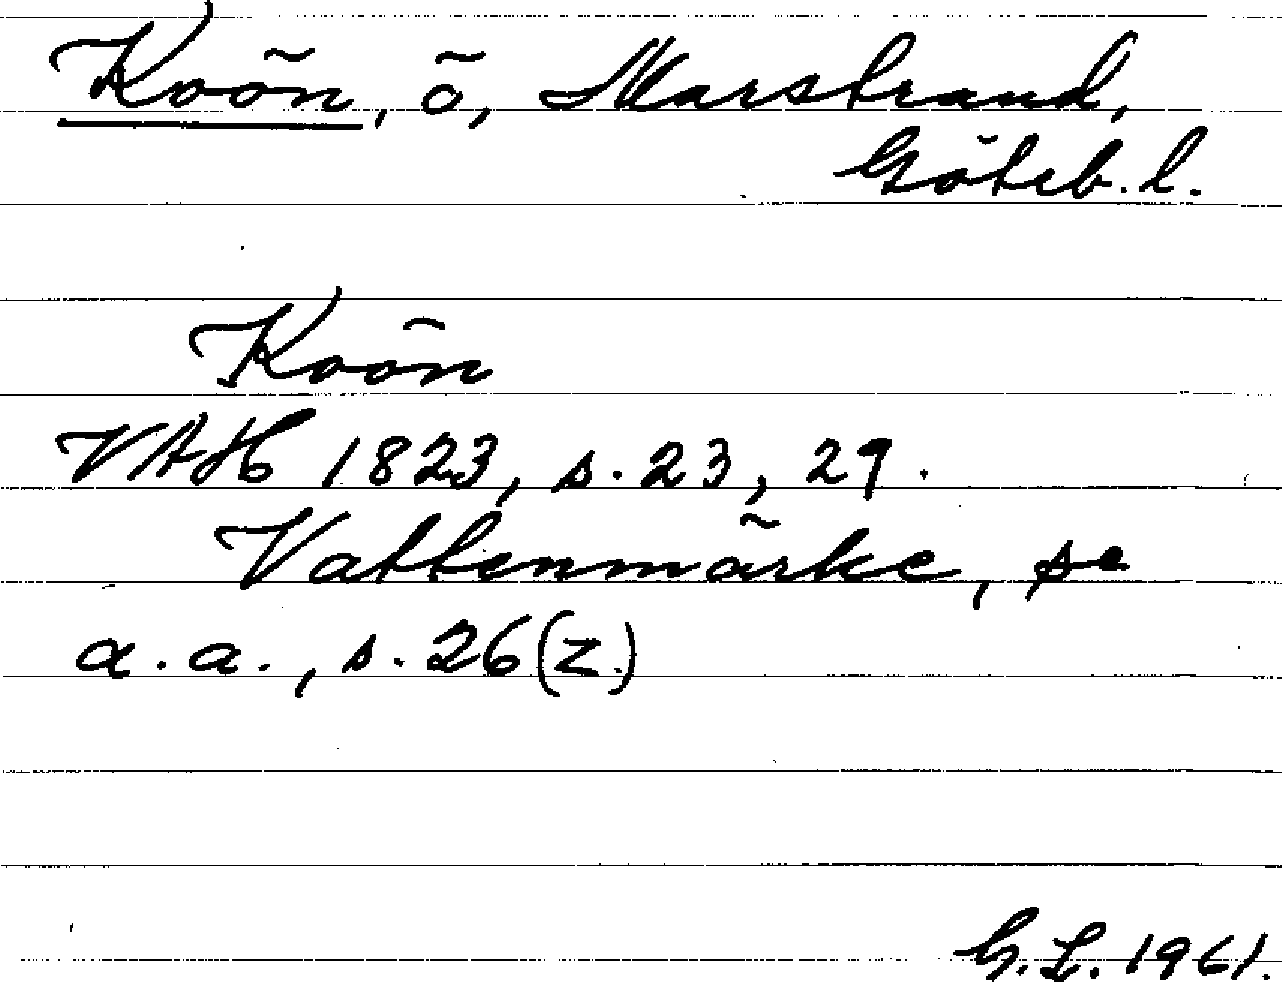 Koön, ö, Marstrand,
Göteb. l.
Koön
VAH 1823, s. 23, 29.
Vattenmärke, se
a. a., s. 26 (z.)
G. L. 1961.